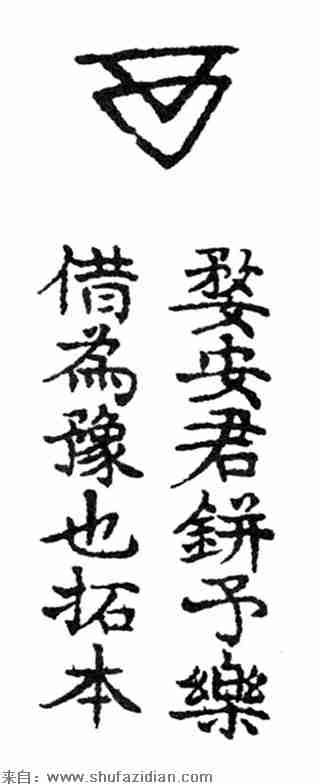 予
婺安君鉼予樂
借為豫也拓本
来自：www.shufazidian.com